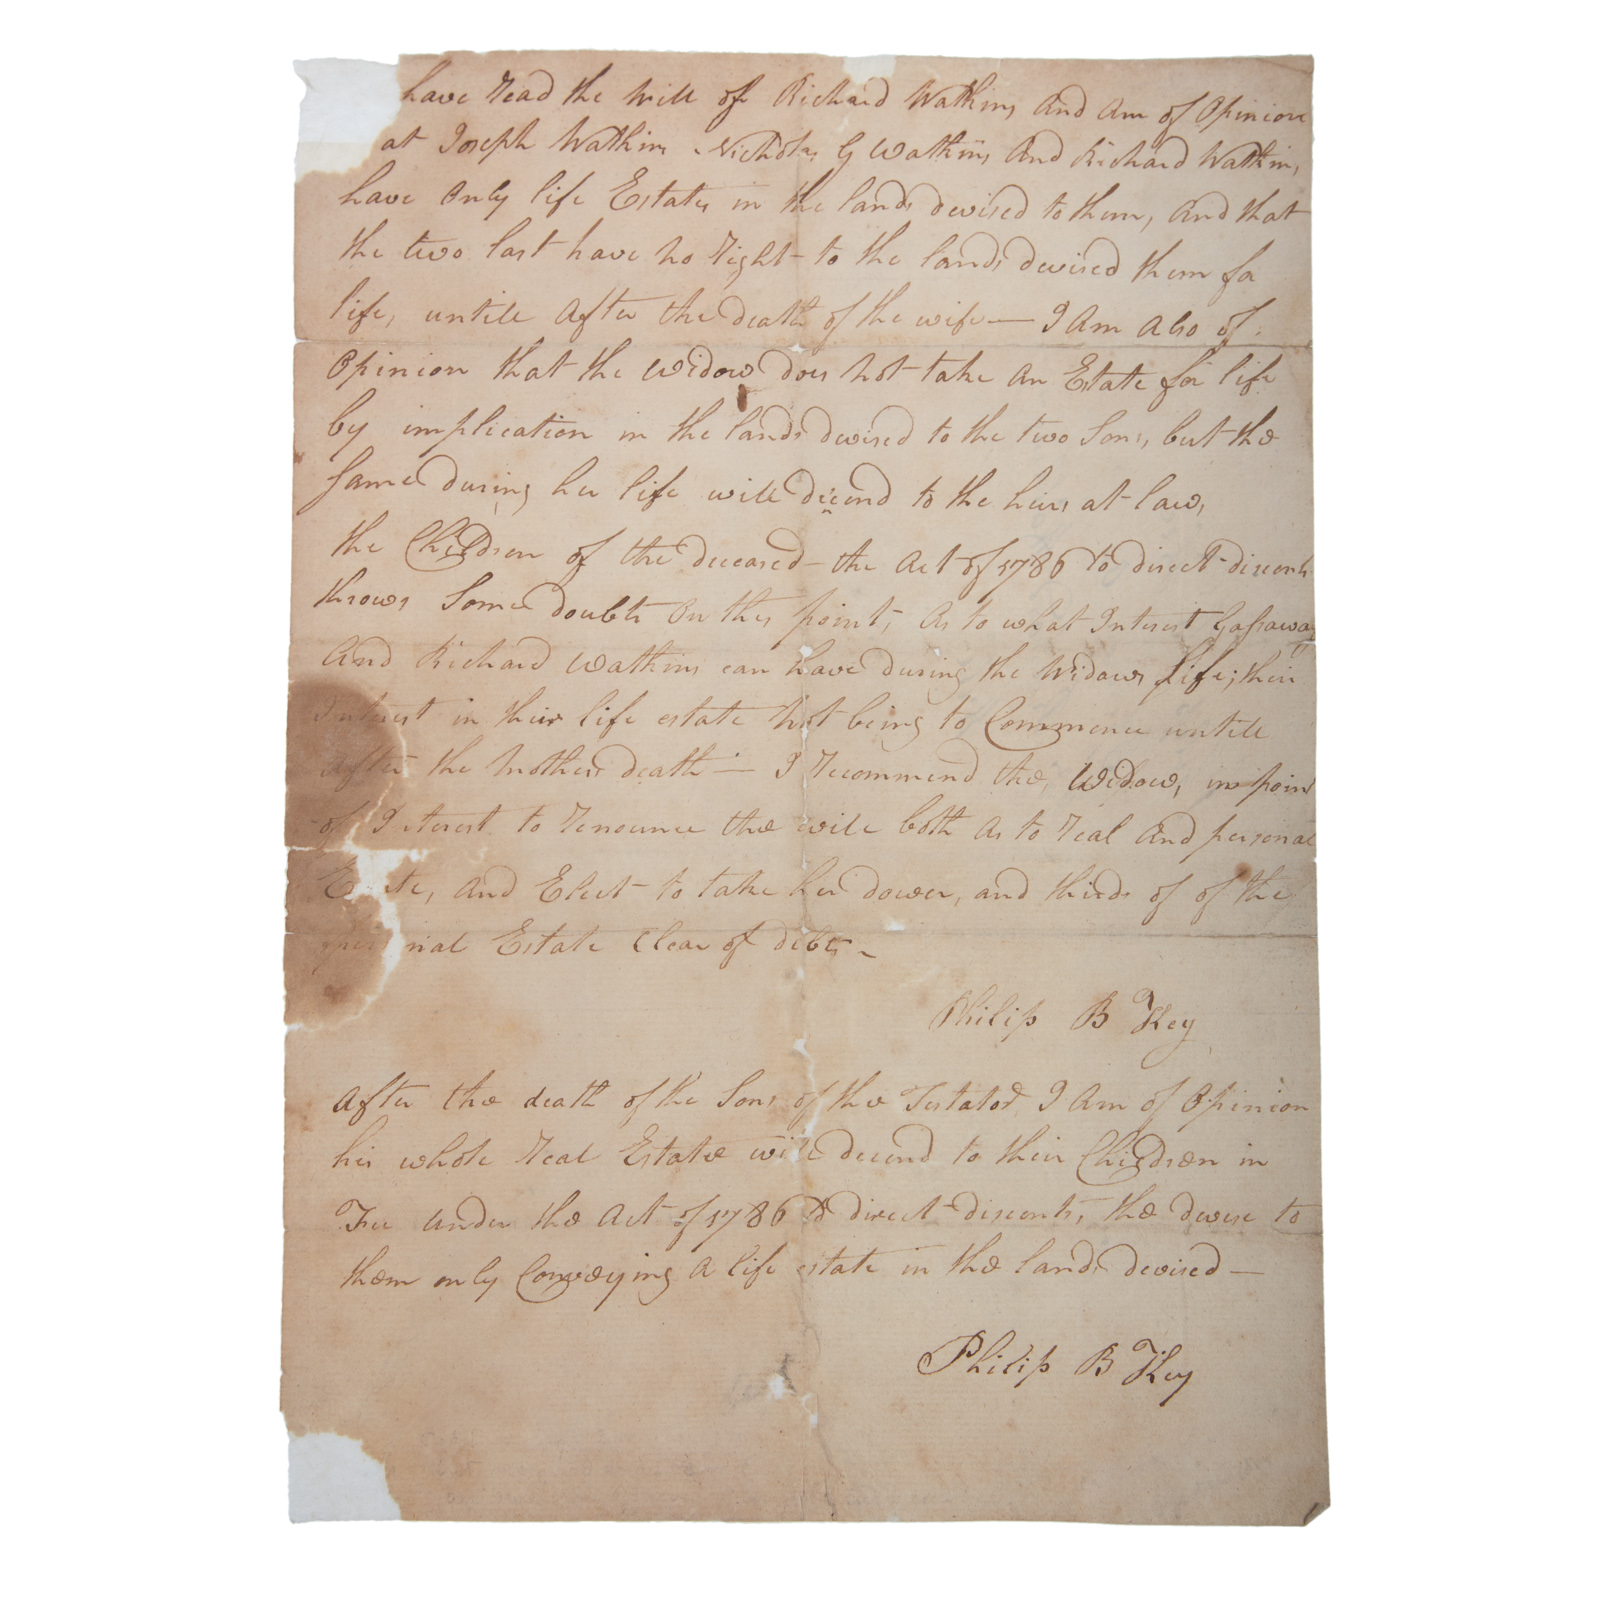 have read the will of Richard Watkins and am of Opinion
at Joseph Watkins Nicholas G Watkins and Richard Watkins,
have only life Estates in the lands devised to them, and that
the two last have no right to the lands devised them for
life, untill after the death of the wife — I am also of
Opinion that the Widow does not take an Estate for life
by implication in the lands devised to the two Sons, but the
same during her life will decend to the heirs at law,
the Children of the deceased — the Act of 1786 to direct discents
throws some doubts on this point, as to what Interest Gassaway
and Richard Watkins can have during the Widows life; their
Interest in their life estate not being to Commence untill
after the Mothers death — I recommend the Widow, in poin
of Interest to renounce the will both as to real and personal
Estate, and Elect to take her dower, and thirds of of the
personal Estate Clear of debts —
Philip B Key
After the death of the Sons of the Testator I am of Opinion
his whole real Estate will decend to their Children in
Fee under the Act of 1786 to direct discents, the devise to
them only Conveying a life estate in the lands devised —
Philip B Key